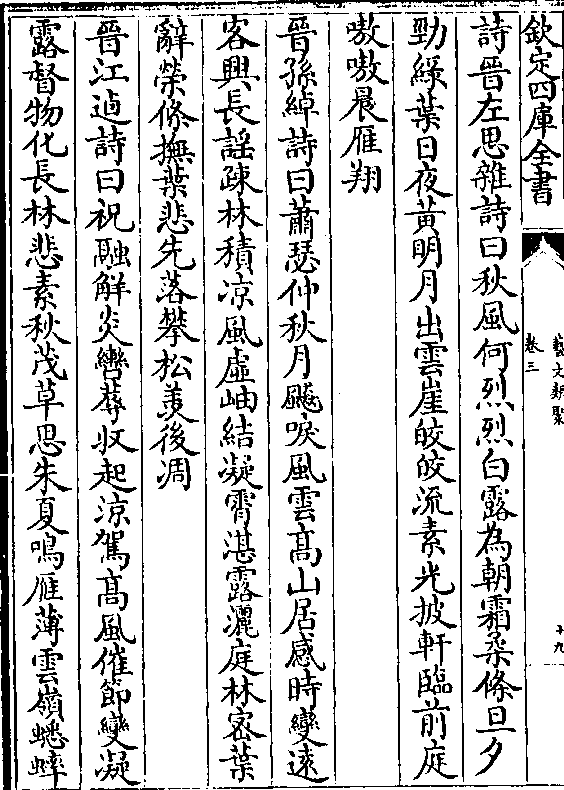 欽定四庫全書
藝文類聚
卷三
十九
詩晉左思雜詩曰秋風何烈烈白露為朝霜柔條旦夕
勁綠葉日夜黃明月出雲崖皎皎流素光披軒臨前庭
嗷嗷晨雁翔
晉孫綽詩曰蕭瑟仲秋月飂唳風雲髙山居感時變遠
客興長謡疎林積凉風虛岫結凝霄湛露灑庭林宻葉
辭榮條撫葉悲先落攀松羡後凋
晉江逌詩曰祝融解炎轡蓐收起凉駕髙風催節變凝
露督物化長林悲素秋茂草思朱夏鳴雁薄雲嶺蟋蟀